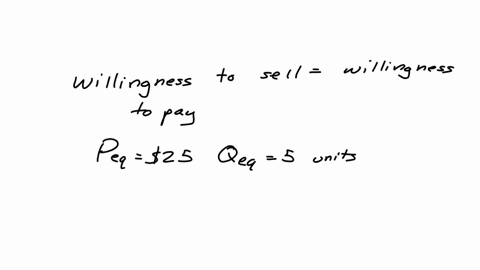 willingness to sell = willingness
to pay
Peq = $25 Qeq = 5 units